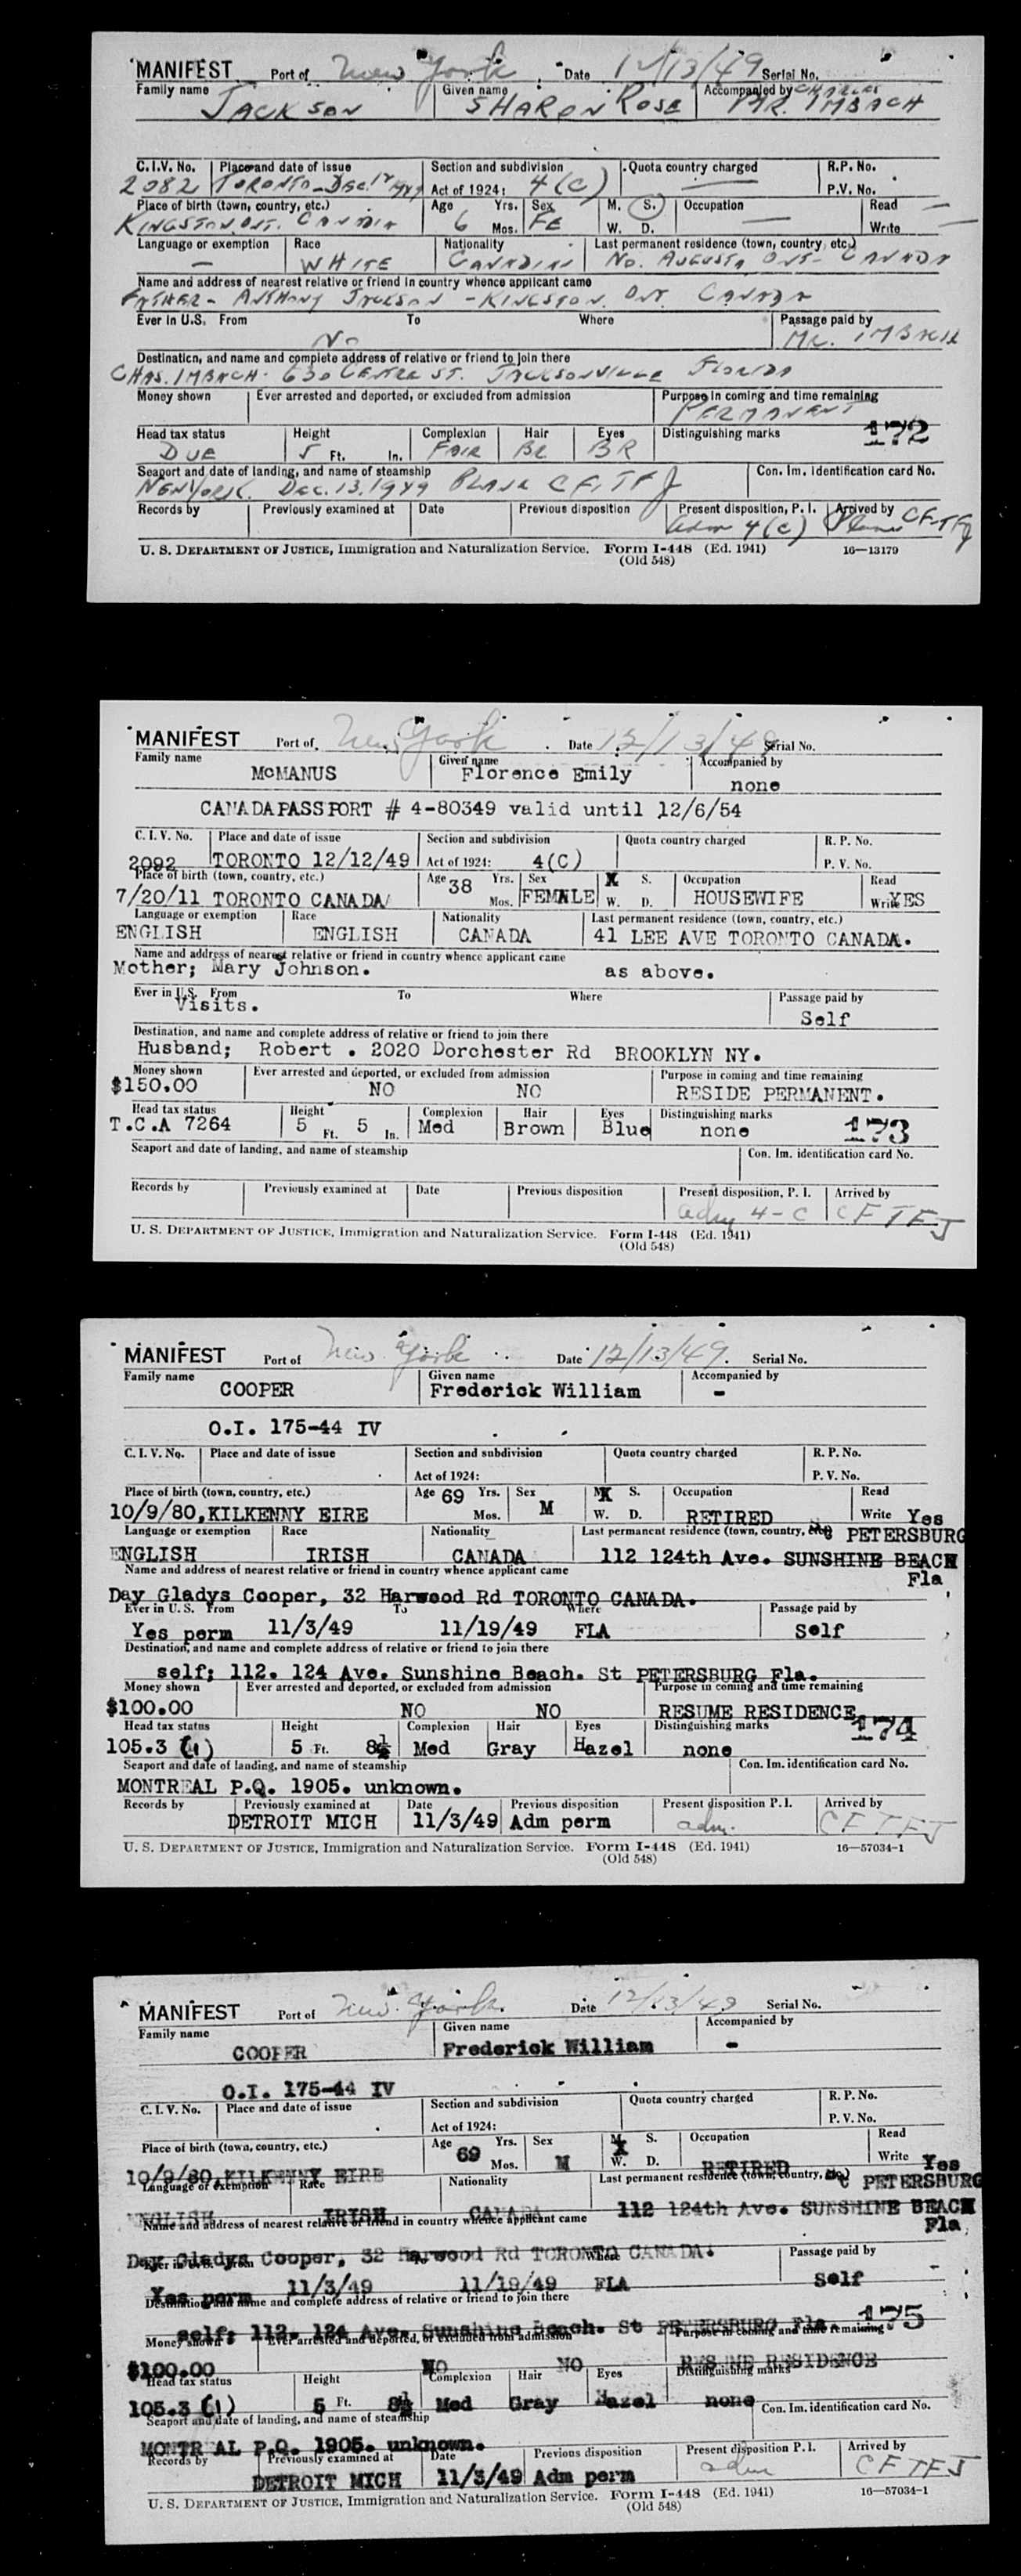 MANIFEST Port of New York Date 12/13/49 Serial No.
Family name Given name Accompanied by CHARLES
JACKSON SHARON ROSE MR. IMBACH
C.I.V. No. Place and date of issue Section and subdivision Quota country charged R.P. No.
2082 TORONTO-DEC. 12 1949 Act of 1924: 4(C) P.V. No.
Place of birth (town, country, etc.) Age Yrs. Sex M. S. Occupation Read
KINGSTON, ONT. CANADA 6 Mos. FE W. D. Write
Language or exemption Race Nationality Last permanent residence (town, country, etc.)
— WHITE CANADIAN NO. AUGUSTA ONT- CANADA
Name and address of nearest relative or friend in country whence applicant came
FATHER- ANTHONY JACKSON - KINGSTON, ONT CANADA
Ever in U.S. From To Where Passage paid by
No MR. IMBACH
Destination, and name and complete address of relative or friend to join there
CHAS. IMBACH- 630 CENTRE ST. JACKSONVILLE FLORIDA
Money shown Ever arrested and deported, or excluded from admission Purpose in coming and time remaining
PERMANENT
Head tax status Height Complexion Hair Eyes Distinguishing marks 172
DUE 5 Ft. In. FAIR BR BR
Seaport and date of landing, and name of steamship Con. Im. identification card No.
NEW YORK. DEC. 13, 1949 PLANE CF, TFJ
Records by Previously examined at Date Previous disposition Present disposition, P. I. Arrived by
adm 4(c) Plane CF-TFJ
U. S. DEPARTMENT OF JUSTICE, Immigration and Naturalization Service. Form I-448 (Ed. 1941) 16—13179
(Old 548)
MANIFEST Port of New York Date 12/13/49 Serial No.
Family name Given name Accompanied by
McMANUS Florence Emily none
CANADAPASSPORT # 4-80349 valid until 12/6/54
C. I. V. No. Place and date of issue Section and subdivision Quota country charged R. P. No.
2092 TORONTO 12/12/49 Act of 1924: 4(C) P. V. No.
Place of birth (town, country, etc.) Age 38 Yrs. Sex X S. Occupation Read
7/20/11 TORONTO CANADA/ Mos. FEMALE W. D. HOUSEWIFE Write YES
Language or exemption Race Nationality Last permanent residence (town, country, etc.)
ENGLISH ENGLISH CANADA 41 LEE AVE TORONTO CANADA.
Name and address of nearest relative or friend in country whence applicant came
Mother; Mary Johnson. as above.
Ever in U.S. From To Where Passage paid by
Visits. Self
Destination, and name and complete address of relative or friend to join there
Husband; Robert . 2020 Dorchester Rd BROOKLYN NY.
Money shown Ever arrested and deported, or excluded from admission Purpose in coming and time remaining
$150.00 NO NO RESIDE PERMANENT.
Head tax status Height Complexion Hair Eyes Distinguishing marks
T.C.A 7264 5 Ft. 5 In. Med Brown Blue none 173
Seaport and date of landing, and name of steamship Con. Im. identification card No.
Records by Previously examined at Date Previous disposition Present disposition, P. I. Arrived by
adm 4-C CF TFJ
U. S. DEPARTMENT OF JUSTICE, Immigration and Naturalization Service. Form I-448 (Ed. 1941)
(Old 548)
MANIFEST Port of New York Date 12/13/49. Serial No.
Family name Given name Accompanied by
COOPER Frederick William -
O.I. 175-44 IV
C. I. V. No. Place and date of issue Section and subdivision Quota country charged R. P. No.
Act of 1924: P. V. No.
Place of birth (town, country, etc.) Age 69 Yrs. Sex MX S. Occupation Read
10/9/80,KILKENNY EIRE Mos. M W. D. RETIRED Write Yes
Language or exemption Race Nationality Last permanent residence (town, country, PETERSBURG
ENGLISH IRISH CANADA 112 124th Ave. SUNSHINE BEACH
Name and address of nearest relative or friend in country whence applicant came Fla
Day Gladys Cooper, 32 Harwood Rd TORONTO CANADA.
Ever in U. S. From To Where Passage paid by
Yes perm 11/3/49 11/19/49 FLA Self
Destination, and name and complete address of relative or friend to join there
self; 112. 124 Ave. Sunshine Beach. St PETERSBURG Fla.
Money shown Ever arrested and deported, or excluded from admission Purpose in coming and time remaining
$100.00 NO NO RESUME RESIDENCE
Head tax status Height Complexion Hair Eyes Distinguishing marks 174
105.3 (1) 5 Ft. 8½ Med Gray Hazel none
Seaport and date of landing, and name of steamship Con. Im. identification card No.
MONTREAL P.Q. 1905. unknown.
Records by Previously examined at Date Previous disposition Present disposition P. I. Arrived by
DETROIT MICH 11/3/49 Adm perm adm. CF TFJ
U. S. DEPARTMENT OF JUSTICE, Immigration and Naturalization Service. Form I-448 (Ed. 1941) 16—57034-1
(Old 548)
MANIFEST Port of New York. Date 12/13/49 Serial No.
Family name Given name Accompanied by
COOPER Frederick William -
O.I. 175-44 IV
C. I. V. No. Place and date of issue Section and subdivision Quota country charged R. P. No.
Act of 1924: P. V. No.
Place of birth (town, country, etc.) Age 69 Yrs. Sex M X S. Occupation Read
10/9/80,KILKENNY EIRE Mos. M W. D. RETIRED Write Yes
Language or exemption Race Nationality Last permanent residence (town, country, PETERSBURG
ENGLISH IRISH CANADA 112 124th Ave. SUNSHINE BEACH
Name and address of nearest relative or friend in country whence applicant came Fla
Day Gladys Cooper, 32 Harwood Rd TORONTO CANADA.
Ever in U. S. From Where Passage paid by
Yes perm 11/3/49 11/19/49 FLA Self
Destination, and name and complete address of relative or friend to join there
self; 112. 124 Ave. Sunshine Beach. St PETERSBURG Fla. 175
Money shown Ever arrested and deported, or excluded from admission Purpose in coming and time remaining
$100.00 NO NO RESUME RESIDENCE
Head tax status Height Complexion Hair Eyes Distinguishing marks
105.3 (1) 5 Ft. 8½ Med Gray Hazel none
Seaport and date of landing, and name of steamship Con. Im. identification card No.
MONTREAL P.Q. 1905. unknown.
Records by Previously examined at Date Previous disposition Present disposition P. I. Arrived by
DETROIT MICH 11/3/49 Adm perm adm CF TFJ
U. S. DEPARTMENT OF JUSTICE, Immigration and Naturalization Service. Form I-448 (Ed. 1941) 16—57034-1
(Old 548)